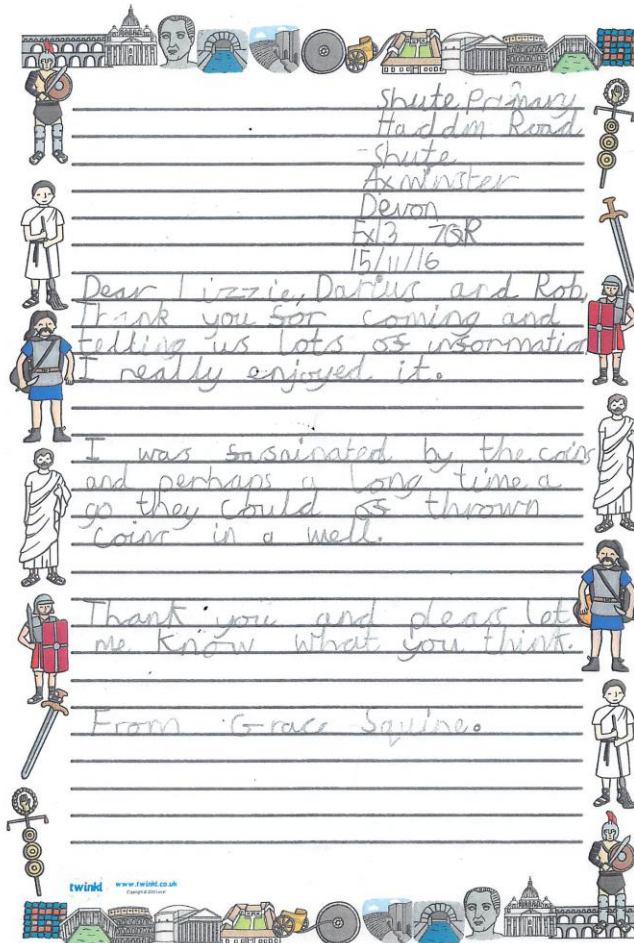 Shute Primary
Haddon Road
Shute
Axminster
Devon
Ex13 7QR
15/11/16
Dear Lizzie, Darius and Rob,
Thank you for coming and
telling us lots of information
I really enjoyed it.
I was fasninated by the coins
and perhaps a long time a
go they could of thrown
coins in a well.
Thank you and pleas let
me know what you think.
From Grace Squine.
twinkl www.twinkl.co.uk